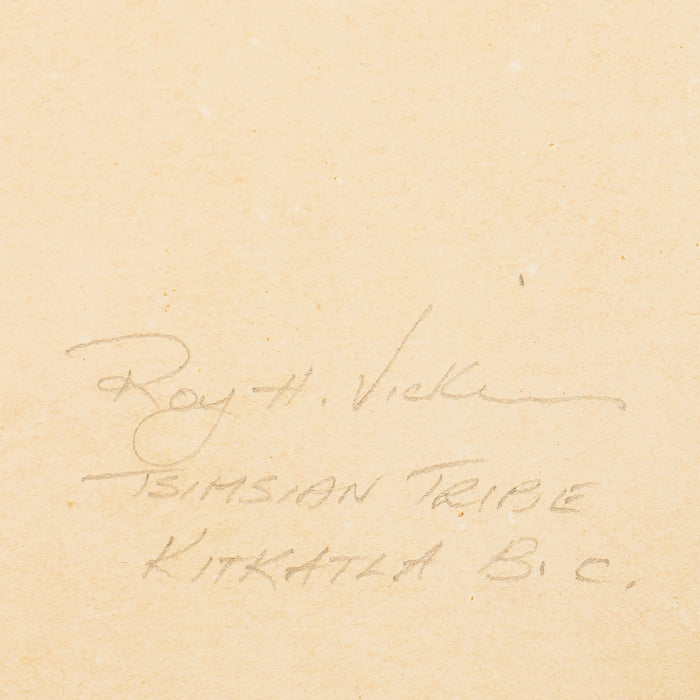 Roy H. Vickers
TSIMSIAN TRIBE
KITKATLA B.C.